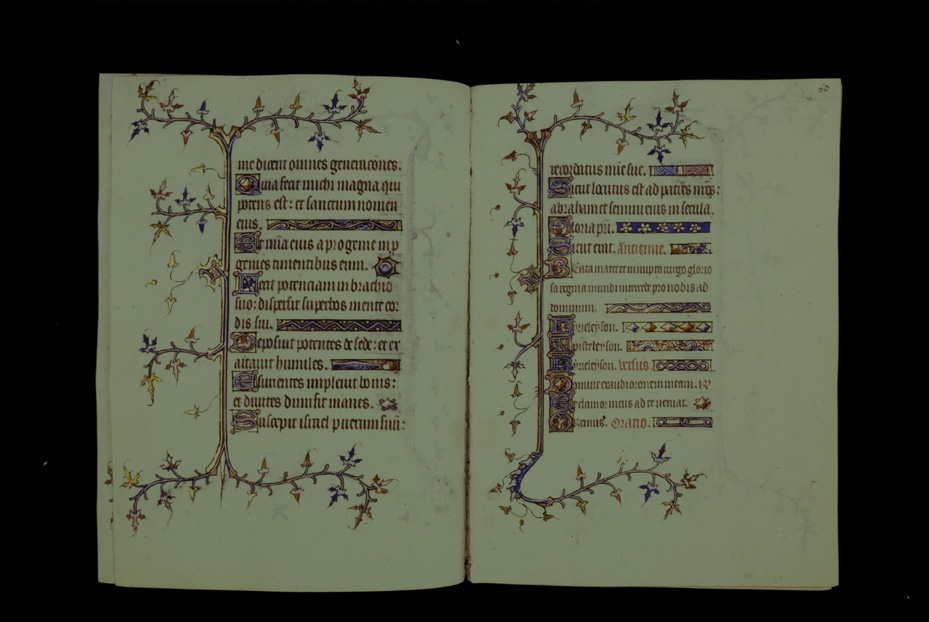 me dicent omnes generacōnes.
Quia fecit michi magna qui
potens est: et sanctum nomen
eius.
Et mīa eius a progenie in p
genies timentibus eum.
Fecit potenciam in brachio
suo: dispersit superbos mente cor
dis sui.
Deposuit potentes de sede: et ex
altauit humiles.
Esurientes impleuit bonis:
et diuites dimisit inanes.
Suscepit israel puerum suū:
60
recordatus mīe sue.
Sicut locutus est ad patres nr̄os:
abraham et semini eius in secula.
Gloria pri.
Sicut erat. Antienne.
Beata mater et innupta uirgo glorio
sa regina mundi intercede pro nobis ad
dominum.
Kyrieleyson.
Xpisteleyson.
Kyrieleyson. versus
Domine exaudi orōnem meam. R
Et clamor meus ad te ueniat.
Oremus. Oratio.